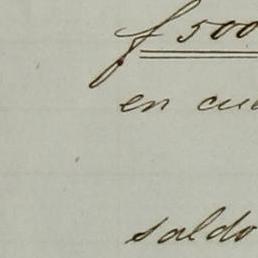 f 500
en cue
saldo